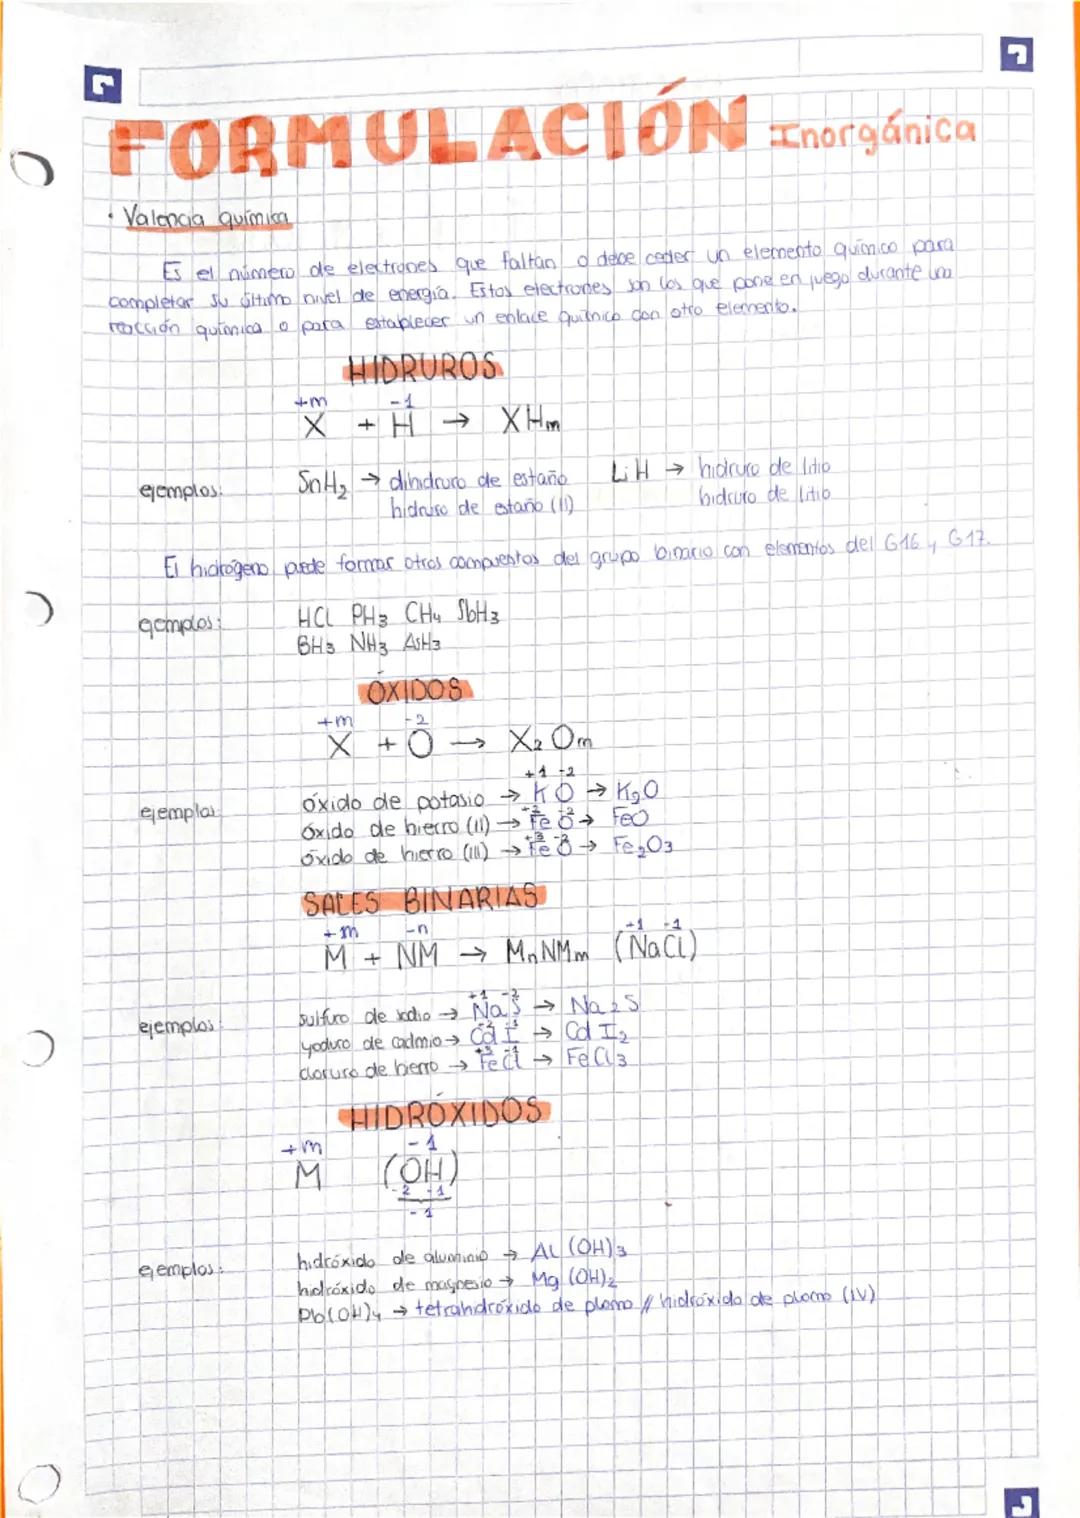 FORMULACIÓN Inorgánica
• Valencia química
Es el número de electrones que faltan o debe ceder un elemento químico para
completar su último nivel de energía. Estos electrones son los que pone en juego durante una
reacción química o para establecer un enlace químico con otro elemento.
HIDRUROS
+m -1
X + H → XHm
ejemplos: SnH₂ → dihidruro de estaño LiH → hidruro de litio
hidruro de estaño (II) hidruro de litio
El hidrógeno puede formar otros compuestos del grupo binario con elementos del G16 y G17.
ejemplos: HCl PH₃ CH₄ SbH₃
BH₃ NH₃ AsH₃
ÓXIDOS
+m -2
X + O → X₂Om
+1 -2
ejemplos: óxido de potasio → K O → K₂O
+2 -2
óxido de hierro (II) → Fe O → FeO
+3 -2
óxido de hierro (III) → Fe O → Fe₂O₃
SALES BINARIAS
+m -n +1 -1
M + NM → MnNMm (NaCl)
+1 -2
ejemplos: sulfuro de sodio → Na S → Na₂S
+2 -1
yoduro de cadmio → Cd I → Cd I₂
+3 -1
cloruro de hierro → Fe Cl → FeCl₃
HIDRÓXIDOS
+m -1
M (OH)
-2 -1
-1
ejemplos: hidróxido de aluminio → Al (OH)₃
hidróxido de magnesio → Mg (OH)₂
Pb(OH)₄ → tetrahidróxido de plomo // hidróxido de plomo (IV)